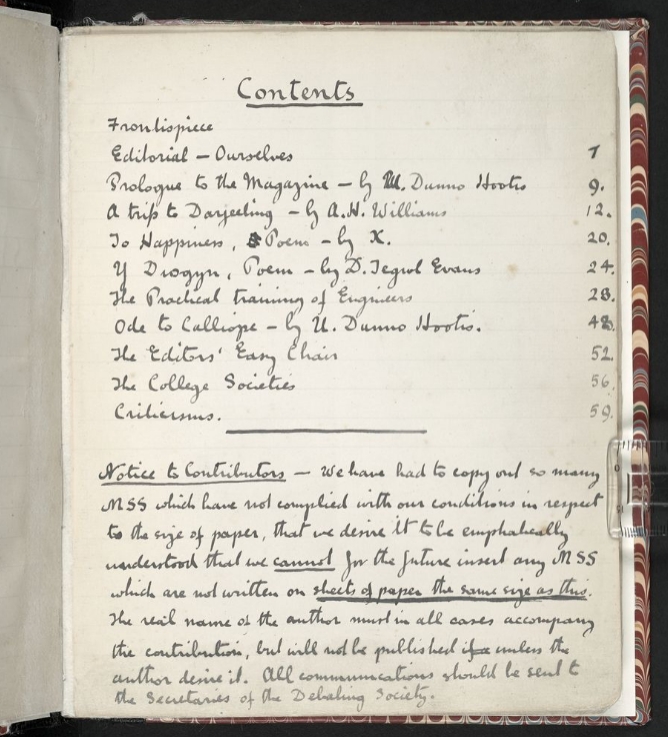 Contents
Frontispiece
Editorial — Ourselves 7
Prologue to the Magazine — by U. Dunno Hootis 9.
A trip to Darjeeling — by A.H. Williams 12.
To Happiness, Poem — by X. 20.
Y Drogyn, Poem — by D. Tegwl Evans 24.
The Practical training of Engineers 28.
Ode to Calliope — by U. Dunno Hootis. 48.
The Editors' Easy Chair 52.
The College Societies 56.
Criticisms. 59.
Notice to Contributors — We have had to copy out so many
MSS which have not complied with our conditions in respect
to the size of paper, that we desire it to be emphatically
understood that we cannot for the future insert any MSS
which are not written on sheets of paper the same size as this.
The real name of the author must in all cases accompany
the contribution, but will not be published unless the
author desire it. All communications should be sent to
the Secretaries of the Debating Society.